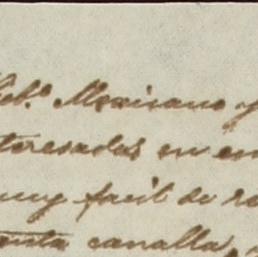 Mexicano y
teresados en en
muy facil de re
enta canalla,